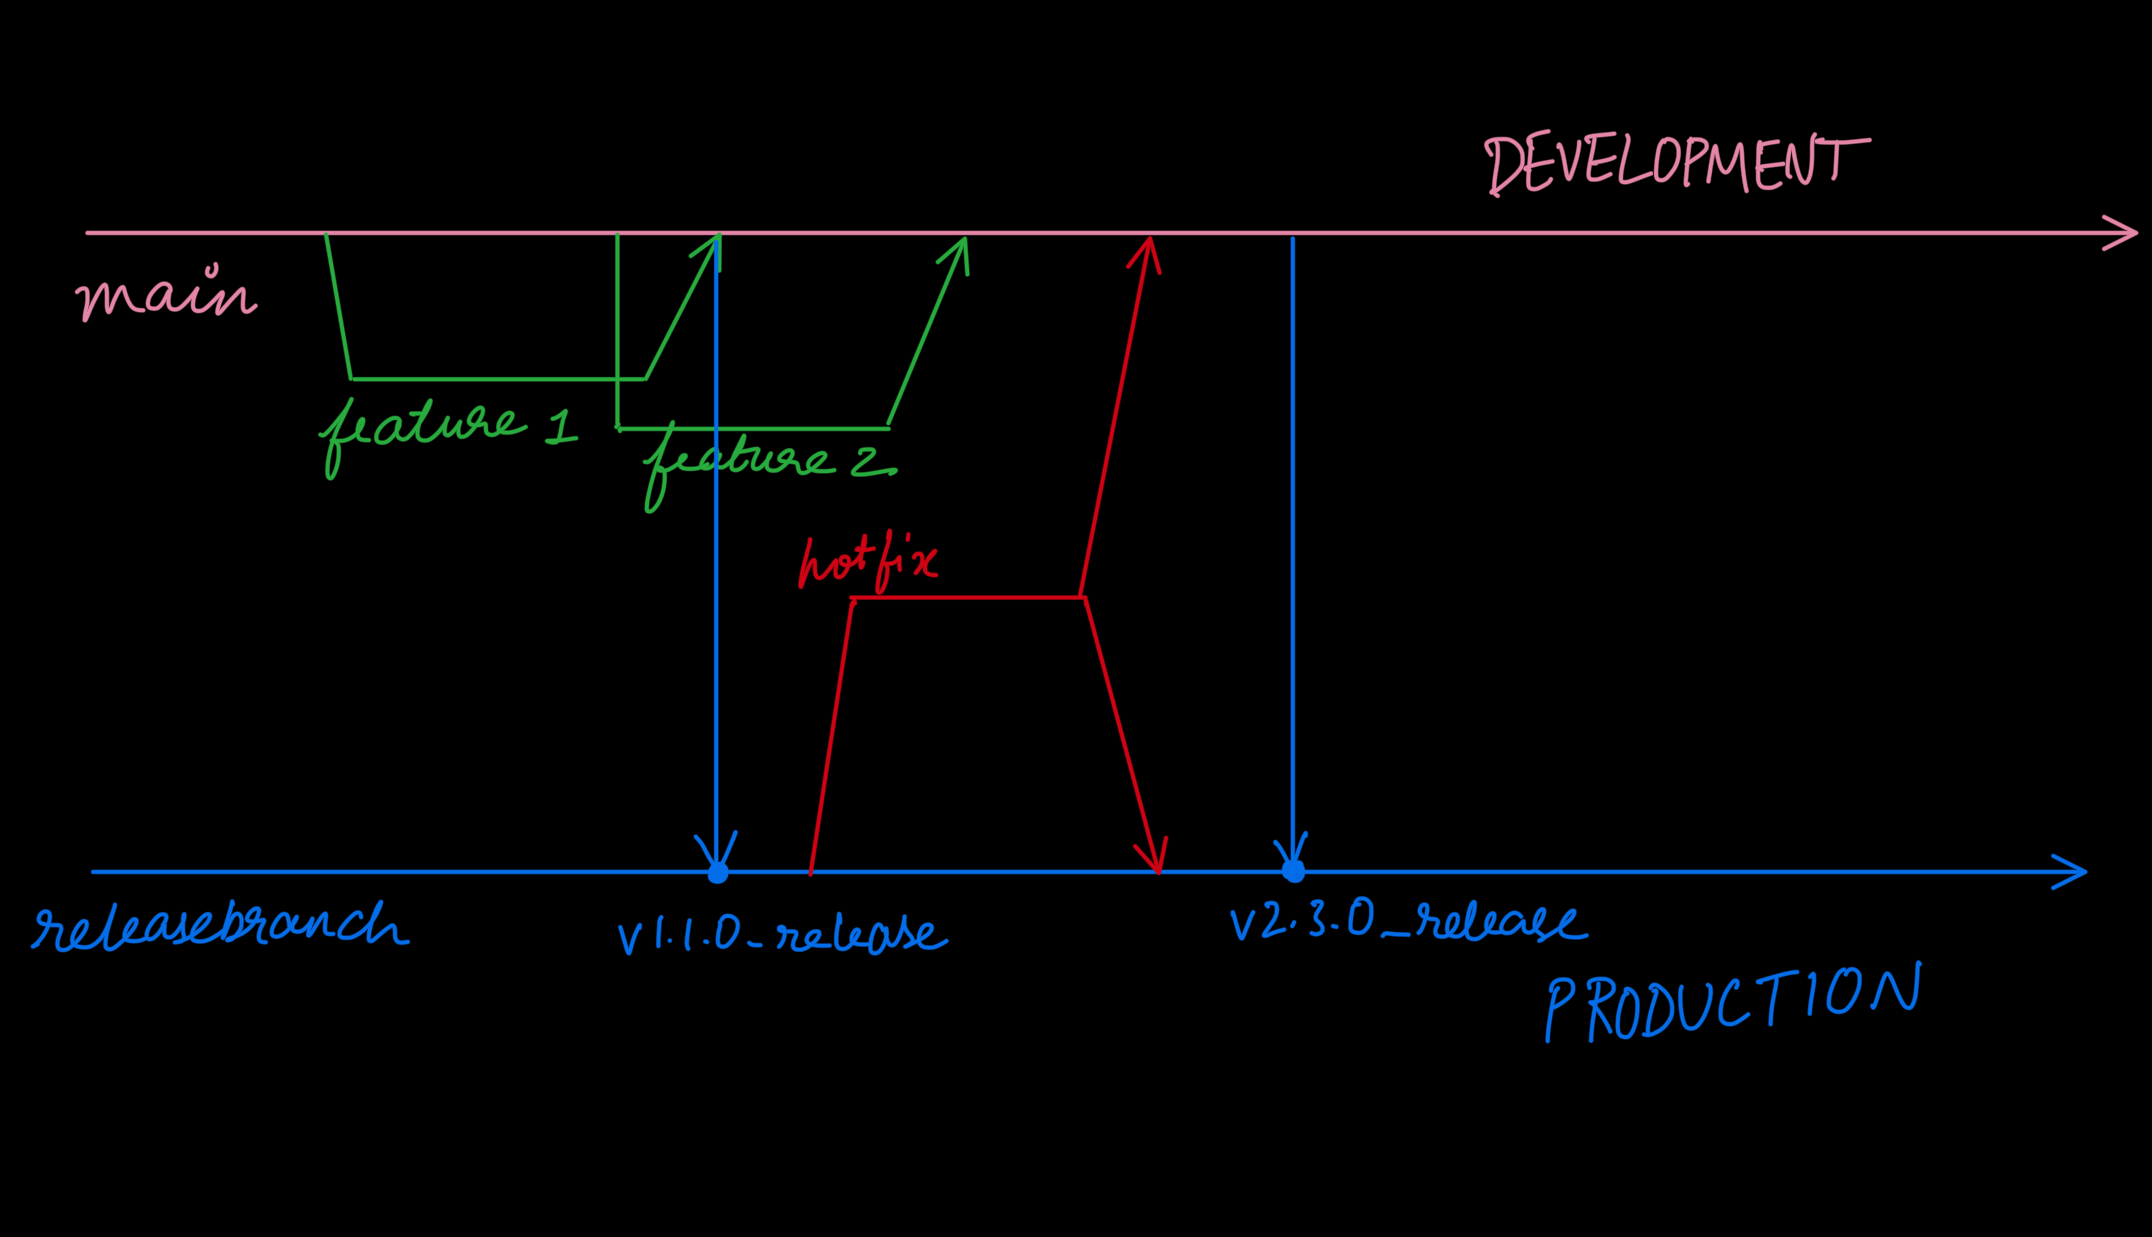 DEVELOPMENT
main
feature 1
feature 2
hotfix
releasebranch
v1.1.0_release
v2.3.0_release
PRODUCTION